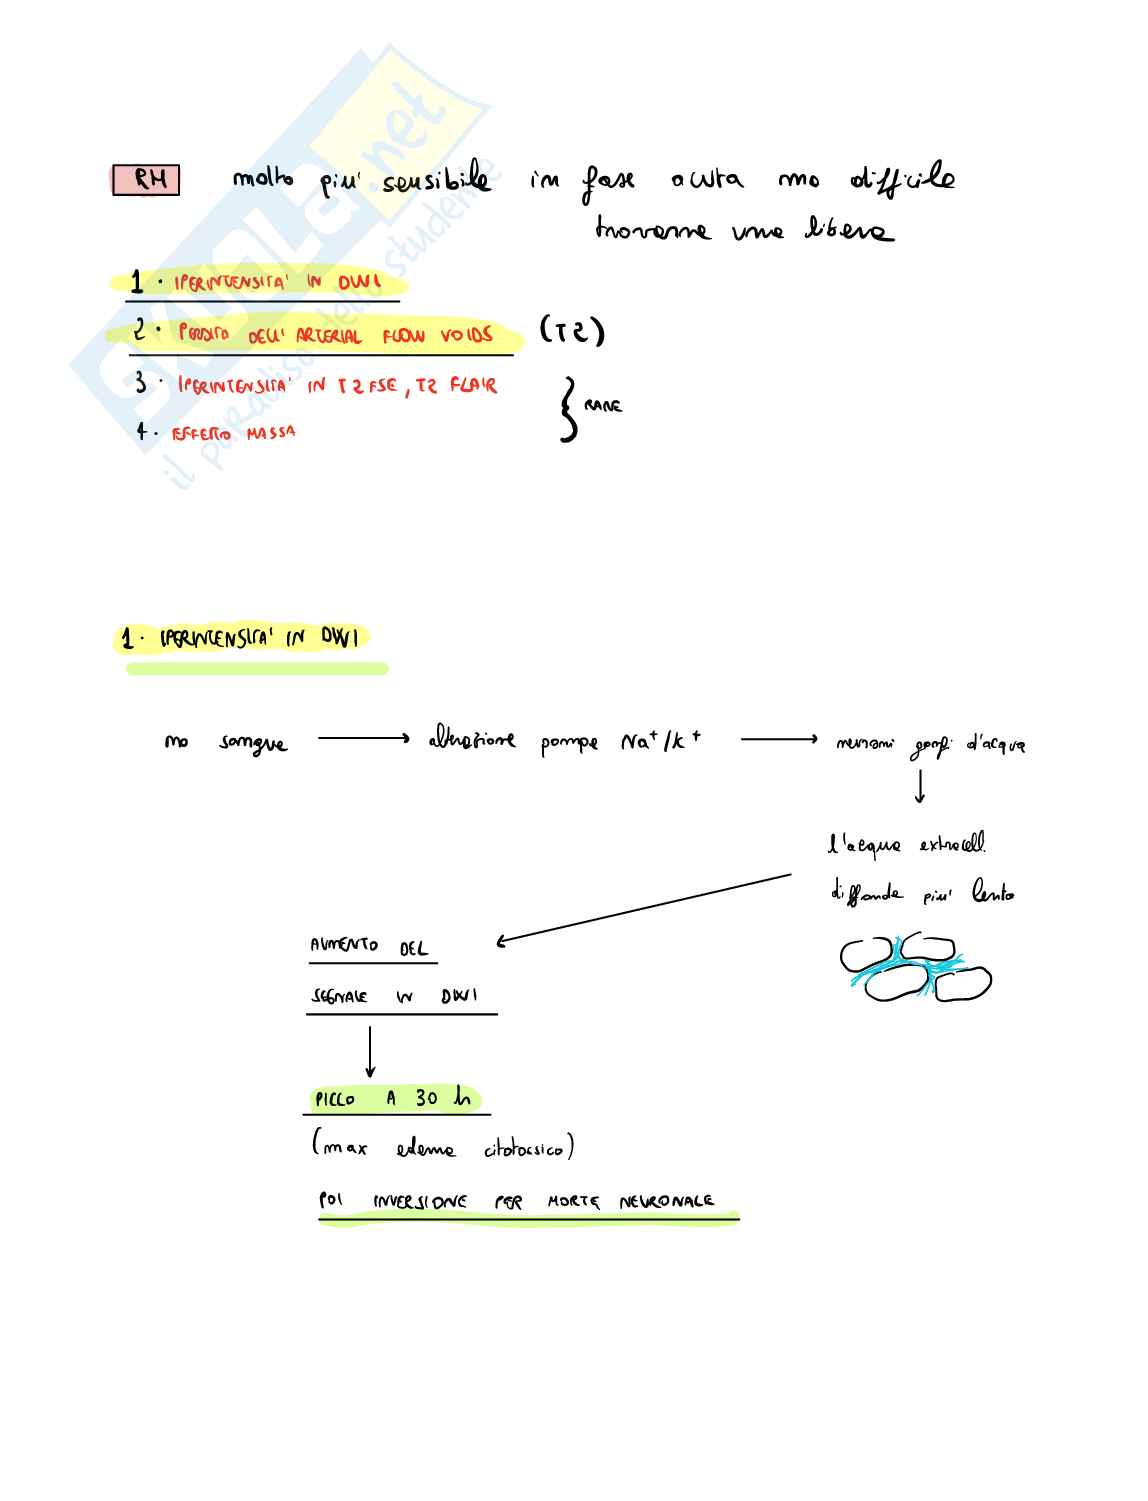 RM molto più sensibile in fase acuta ma difficile
trovarne una libera
1. IPERINTENSITA' IN DWI
2. PERDITA DELL' ARTERIAL FLOW VOIDS (T2)
3. IPERINTENSITA' IN T2 FSE, T2 FLAIR
} RARE
4. EFFETTO MASSA
1. IPERINTENSITA' IN DWI
no sangue → alterazione pompe Na⁺/K⁺ → neuroni gonfi d'acqua
l'acqua extracell.
diffonde più lento
AUMENTO DEL
SEGNALE IN DWI
PICCO A 30 h
(max edema citotossico)
POI INVERSIONE PER MORTE NEURONALE
SKUOLA.net
il paradiso dello studente